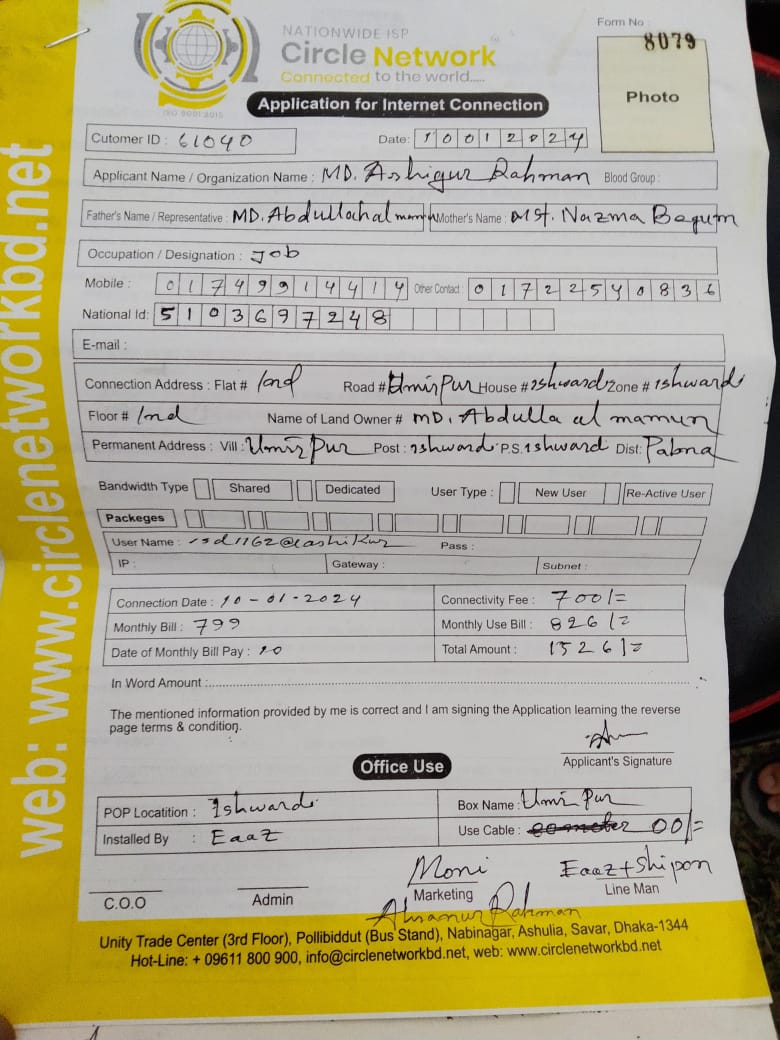 NATIONWIDE ISP
Circle Network
Connected to the world.....
ISO 9001:2015
Form No :
8079
Photo
Application for Internet Connection
Cutomer ID : 61040 Date: 10012024
Applicant Name / Organization Name : MD. Ashiqur Rahman Blood Group :
Father's Name / Representative : MD. Abdullahal mamun Mother's Name : Mst. Nazma Begum
Occupation / Designation : Job
Mobile : 01749914414 Other Contact 01722540836
National Id: 5103697248
E-mail :
Connection Address : Flat # Road # Umirpur House # Ishwardi Zone # Ishwardi
Floor # Name of Land Owner # MD. Abdulla al mamun
Permanent Address : Vill : Umirpur Post : Ishwardi P.S. Ishwardi Dist: Pabna
Bandwidth Type Shared Dedicated User Type : New User Re-Active User
Packeges
User Name : isd1162@ashikur Pass :
IP : Gateway : Subnet :
Connection Date : 10-01-2024 Connectivity Fee : 700/=
Monthly Bill : 799 Monthly Use Bill : 826/=
Date of Monthly Bill Pay : 10 Total Amount : 1526/=
In Word Amount :
The mentioned information provided by me is correct and I am signing the Application learning the reverse
page terms & condition.
Applicant's Signature
Office Use
POP Locatition : Ishwardi Box Name : Umirpur
Installed By : Eaaz Use Cable : 00/=
Moni Eaaz+Shipon
C.O.O Admin Marketing Line Man
Ahsanur Rahman
Unity Trade Center (3rd Floor), Pollibiddut (Bus Stand), Nabinagar, Ashulia, Savar, Dhaka-1344
Hot-Line: + 09611 800 900, info@circlenetworkbd.net, web: www.circlenetworkbd.net
web: www.circlenetworkbd.net